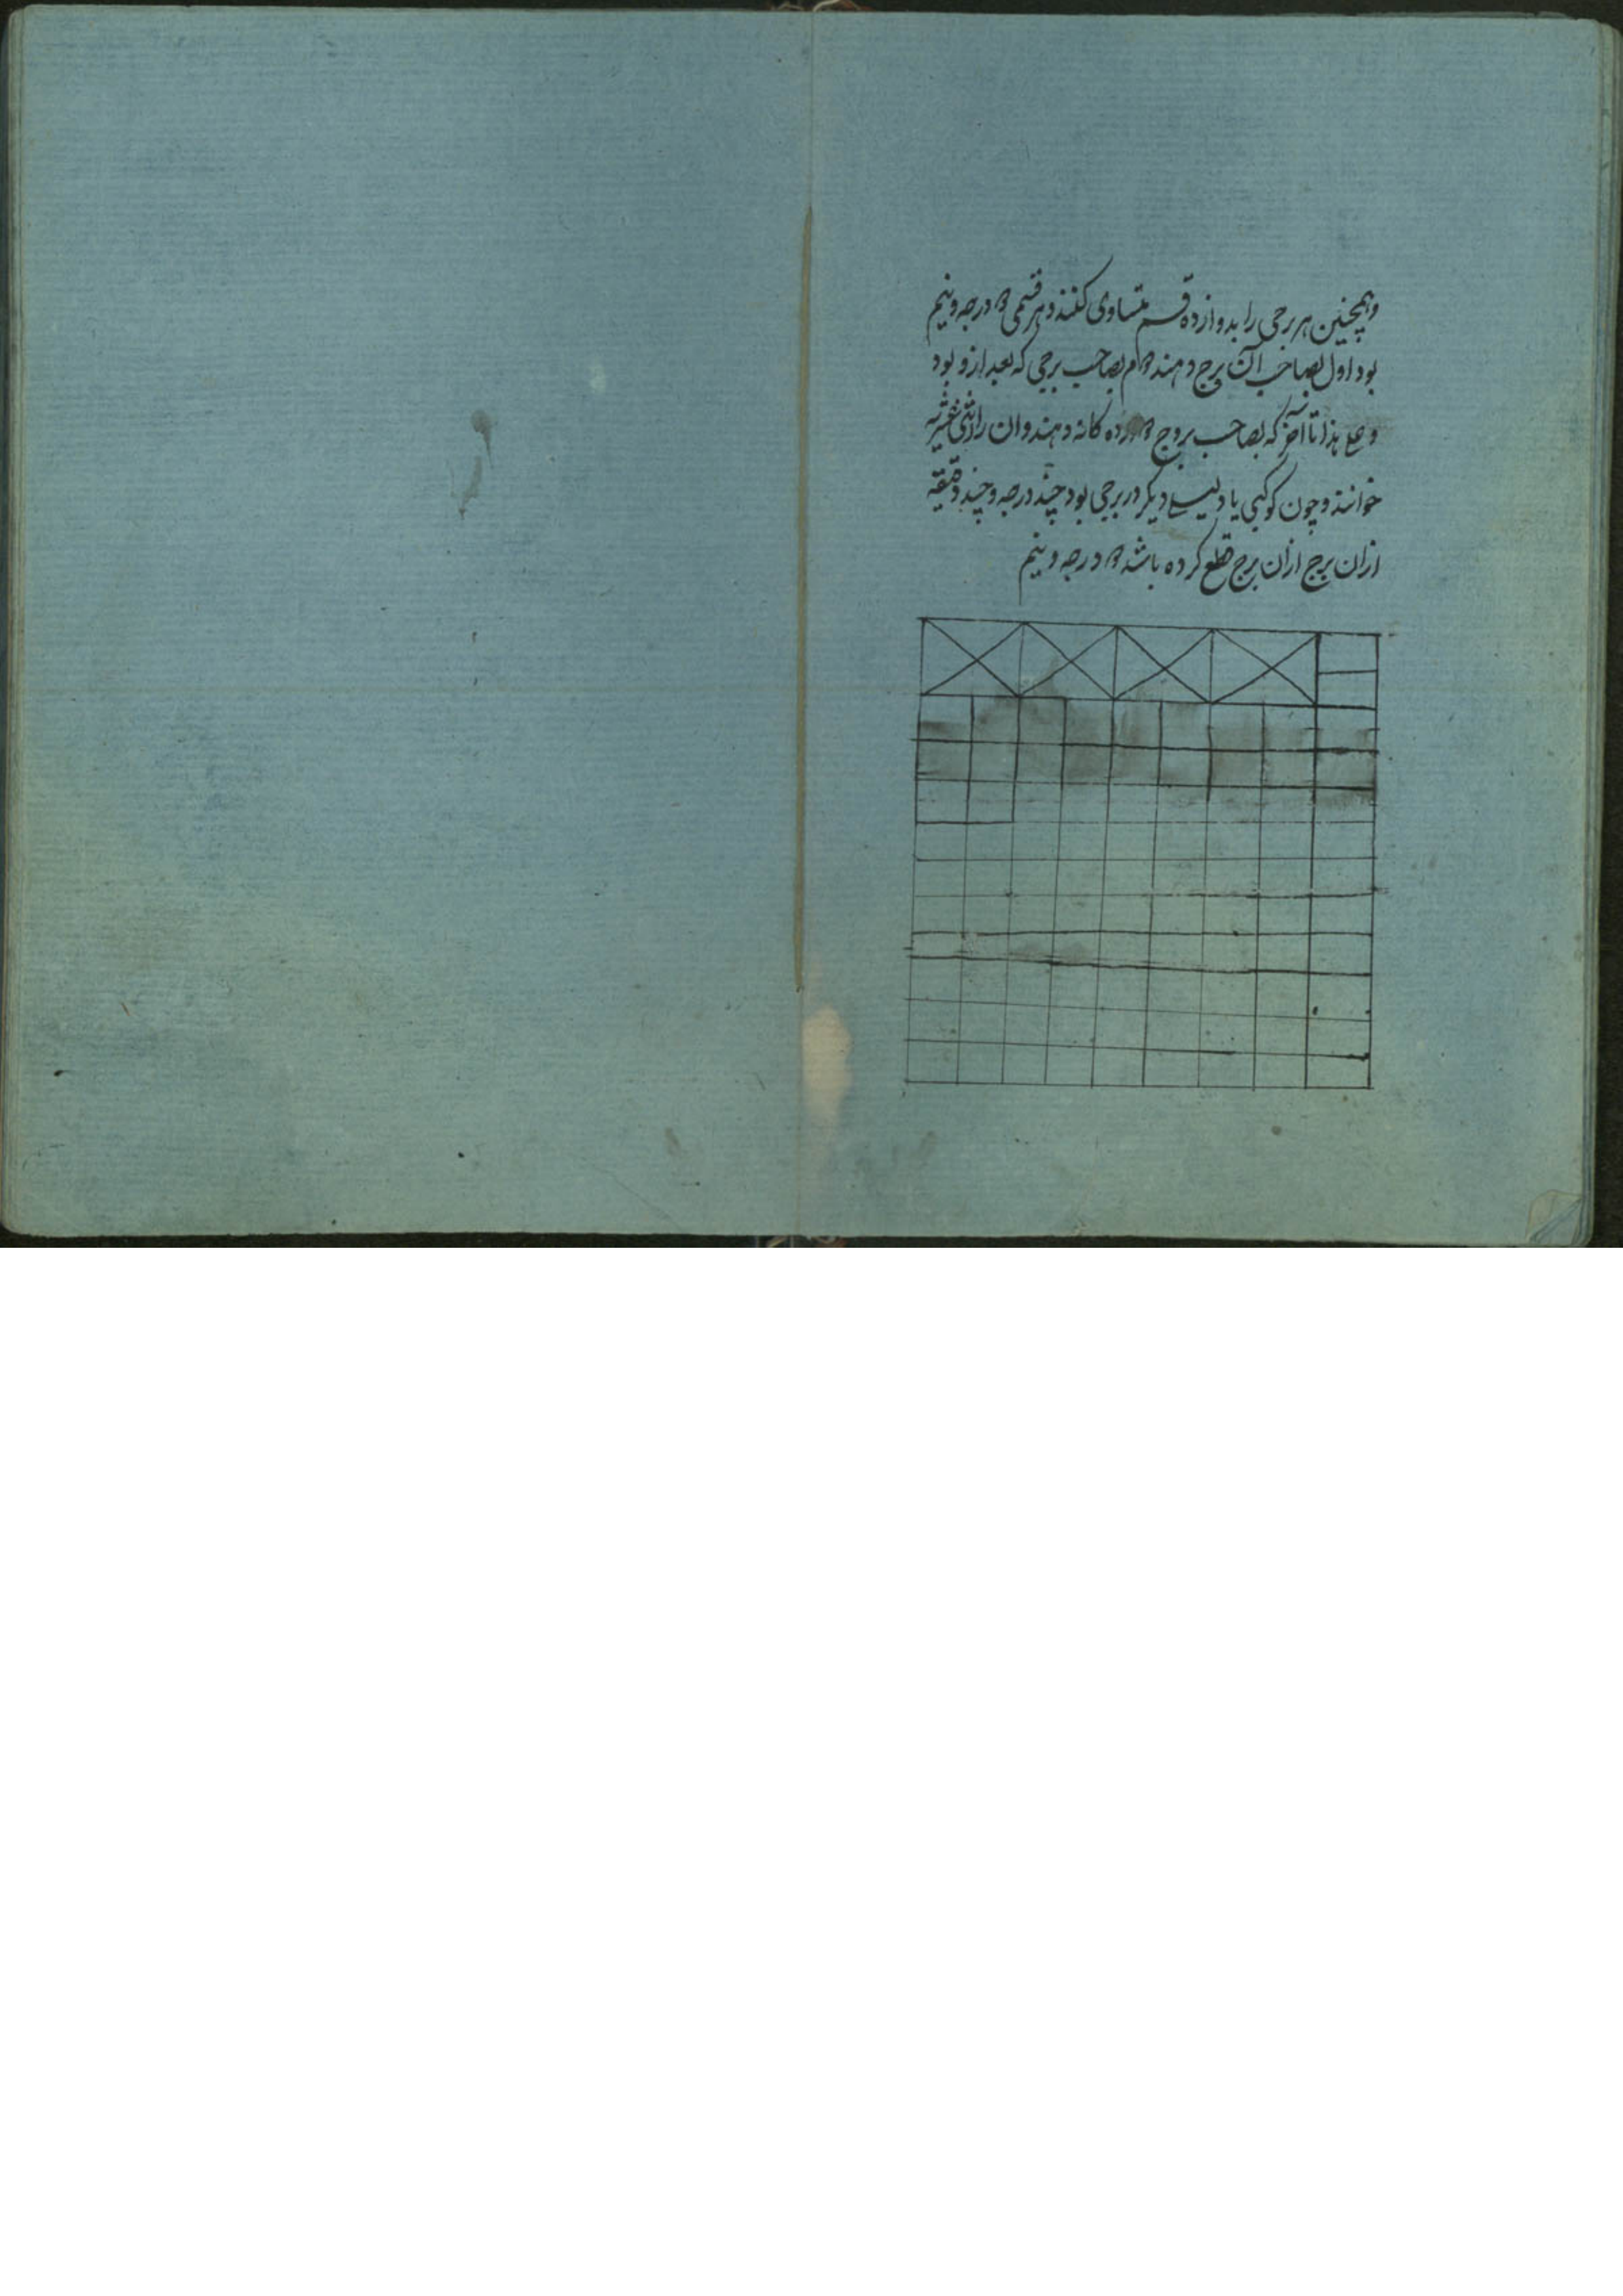 وهمچنین هر برجی را بدوازده قسم متساوی کنند و هر قسمی دو درجه و نیم
بود اول بصاحب آن برج دهند دوم بصاحب برجی که بعد ازو بود
و علی هذا تا آخر که بصاحب بروج دوازده کانه دهند و ان را اثنی عشریه
خوانند و چون کوکبی یا دلیلی دیکر در برجی بود چند درجه و چند دقیقه
ازان برج ازان برج قطع کرده باشد دو درجه و نیم